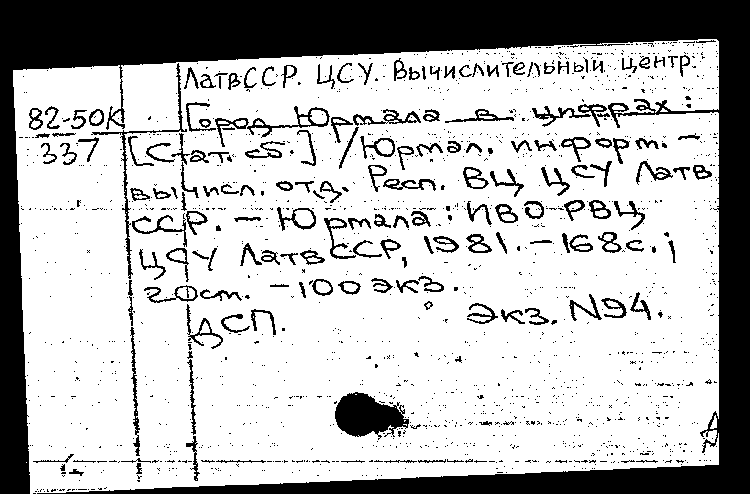 ЛатвССР. ЦСУ. Вычислительный центр.
82-50К Город Юрмала в цифрах:
337 [Стат. сб.] / Юрмал. информ. –
вычисл. отд. Респ. ВЦ ЦСУ Латв
ССР. – Юрмала: ИВО РВЦ
ЦСУ ЛатвССР, 1981. – 168 с.;
20 см. – 100 экз.
ДСП. Экз. N94.